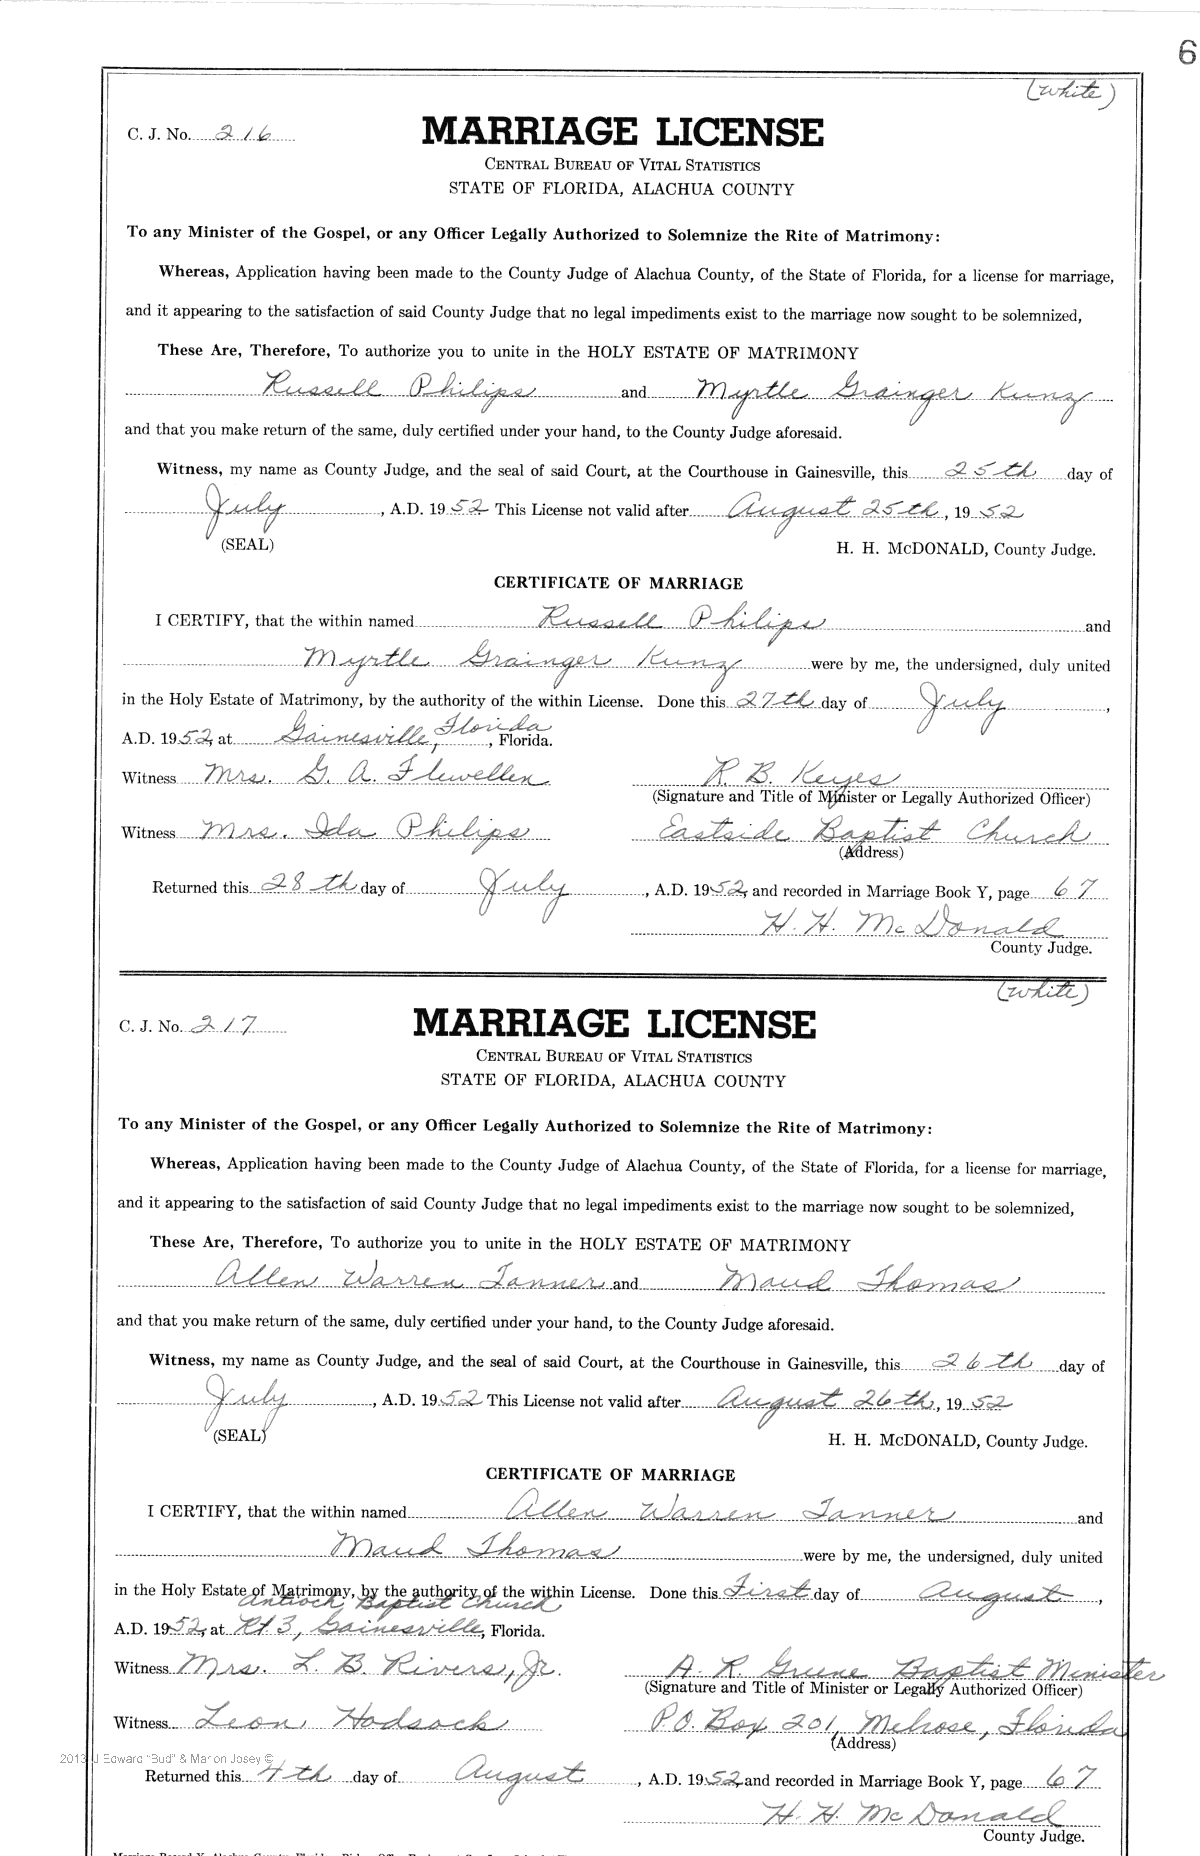 6
(White)
C. J. No. 216
MARRIAGE LICENSE
CENTRAL BUREAU OF VITAL STATISTICS
STATE OF FLORIDA, ALACHUA COUNTY
To any Minister of the Gospel, or any Officer Legally Authorized to Solemnize the Rite of Matrimony:
Whereas, Application having been made to the County Judge of Alachua County, of the State of Florida, for a license for marriage,
and it appearing to the satisfaction of said County Judge that no legal impediments exist to the marriage now sought to be solemnized,
These Are, Therefore, To authorize you to unite in the HOLY ESTATE OF MATRIMONY
Russell Philips and Myrtle Grainger Kunz
and that you make return of the same, duly certified under your hand, to the County Judge aforesaid.
Witness, my name as County Judge, and the seal of said Court, at the Courthouse in Gainesville, this 25th day of
July, A.D. 1952 This License not valid after August 25th, 1952
(SEAL) H. H. McDONALD, County Judge.
CERTIFICATE OF MARRIAGE
I CERTIFY, that the within named Russell Philips and
Myrtle Grainger Kunz were by me, the undersigned, duly united
in the Holy Estate of Matrimony, by the authority of the within License. Done this 27th day of July,
A.D. 1952, at Gainesville, Florida, Florida.
Witness Mrs. G. A. Flewellen R. B. Keyes
(Signature and Title of Minister or Legally Authorized Officer)
Witness Mrs. Ida Philips Eastside Baptist Church
(Address)
Returned this 28th day of July, A.D. 1952, and recorded in Marriage Book Y, page 67
H. H. McDonald
County Judge.
(White)
C. J. No. 217
MARRIAGE LICENSE
CENTRAL BUREAU OF VITAL STATISTICS
STATE OF FLORIDA, ALACHUA COUNTY
To any Minister of the Gospel, or any Officer Legally Authorized to Solemnize the Rite of Matrimony:
Whereas, Application having been made to the County Judge of Alachua County, of the State of Florida, for a license for marriage,
and it appearing to the satisfaction of said County Judge that no legal impediments exist to the marriage now sought to be solemnized,
These Are, Therefore, To authorize you to unite in the HOLY ESTATE OF MATRIMONY
Allen Warren Tanner and Maud Thomas
and that you make return of the same, duly certified under your hand, to the County Judge aforesaid.
Witness, my name as County Judge, and the seal of said Court, at the Courthouse in Gainesville, this 26th day of
July, A.D. 1952 This License not valid after August 26th, 1952
(SEAL) H. H. McDONALD, County Judge.
CERTIFICATE OF MARRIAGE
I CERTIFY, that the within named Allen Warren Tanner and
Maud Thomas were by me, the undersigned, duly united
in the Holy Estate of Matrimony, by the authority of the within License. Done this First day of August,
Antioch Baptist Church
A.D. 1952, at Rt 3, Gainesville, Florida.
Witness Mrs. L. B. Rivers, Jr. A. R. Greene Baptist Minister
(Signature and Title of Minister or Legally Authorized Officer)
Witness Leon Hodsock P.O. Box 201, Melrose, Florida
(Address)
2013 J Edward "Bud" & Marion Josey ©
Returned this 4th day of August, A.D. 1952, and recorded in Marriage Book Y, page 67
H. H. McDonald
County Judge.